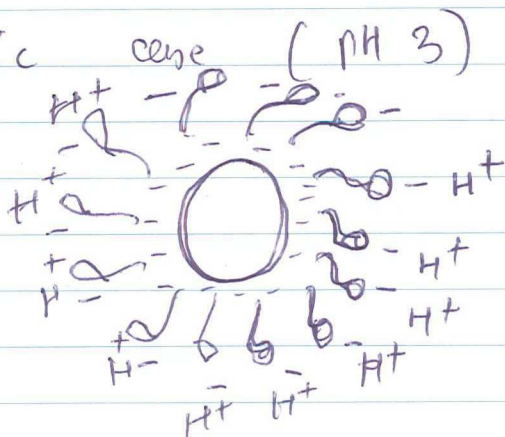 c case (pH 3)
H+ - - - -
- H+
H+ -
+ H -
- H+
- H+
+ H -
- H+
- H+
- H+